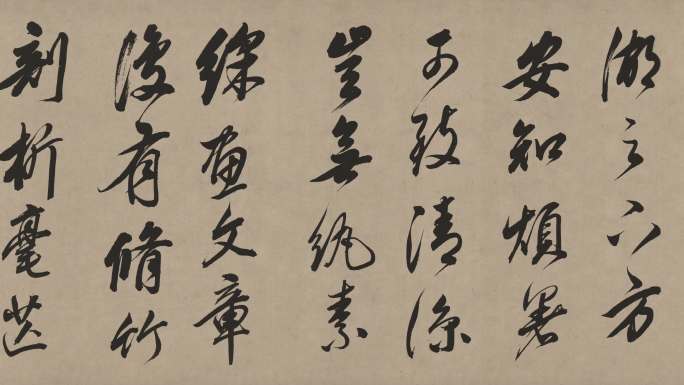 湖之下方
安知煩暑
可致清涼
豈無紈素
綵畫文章
復有脩竹
剖析毫芒